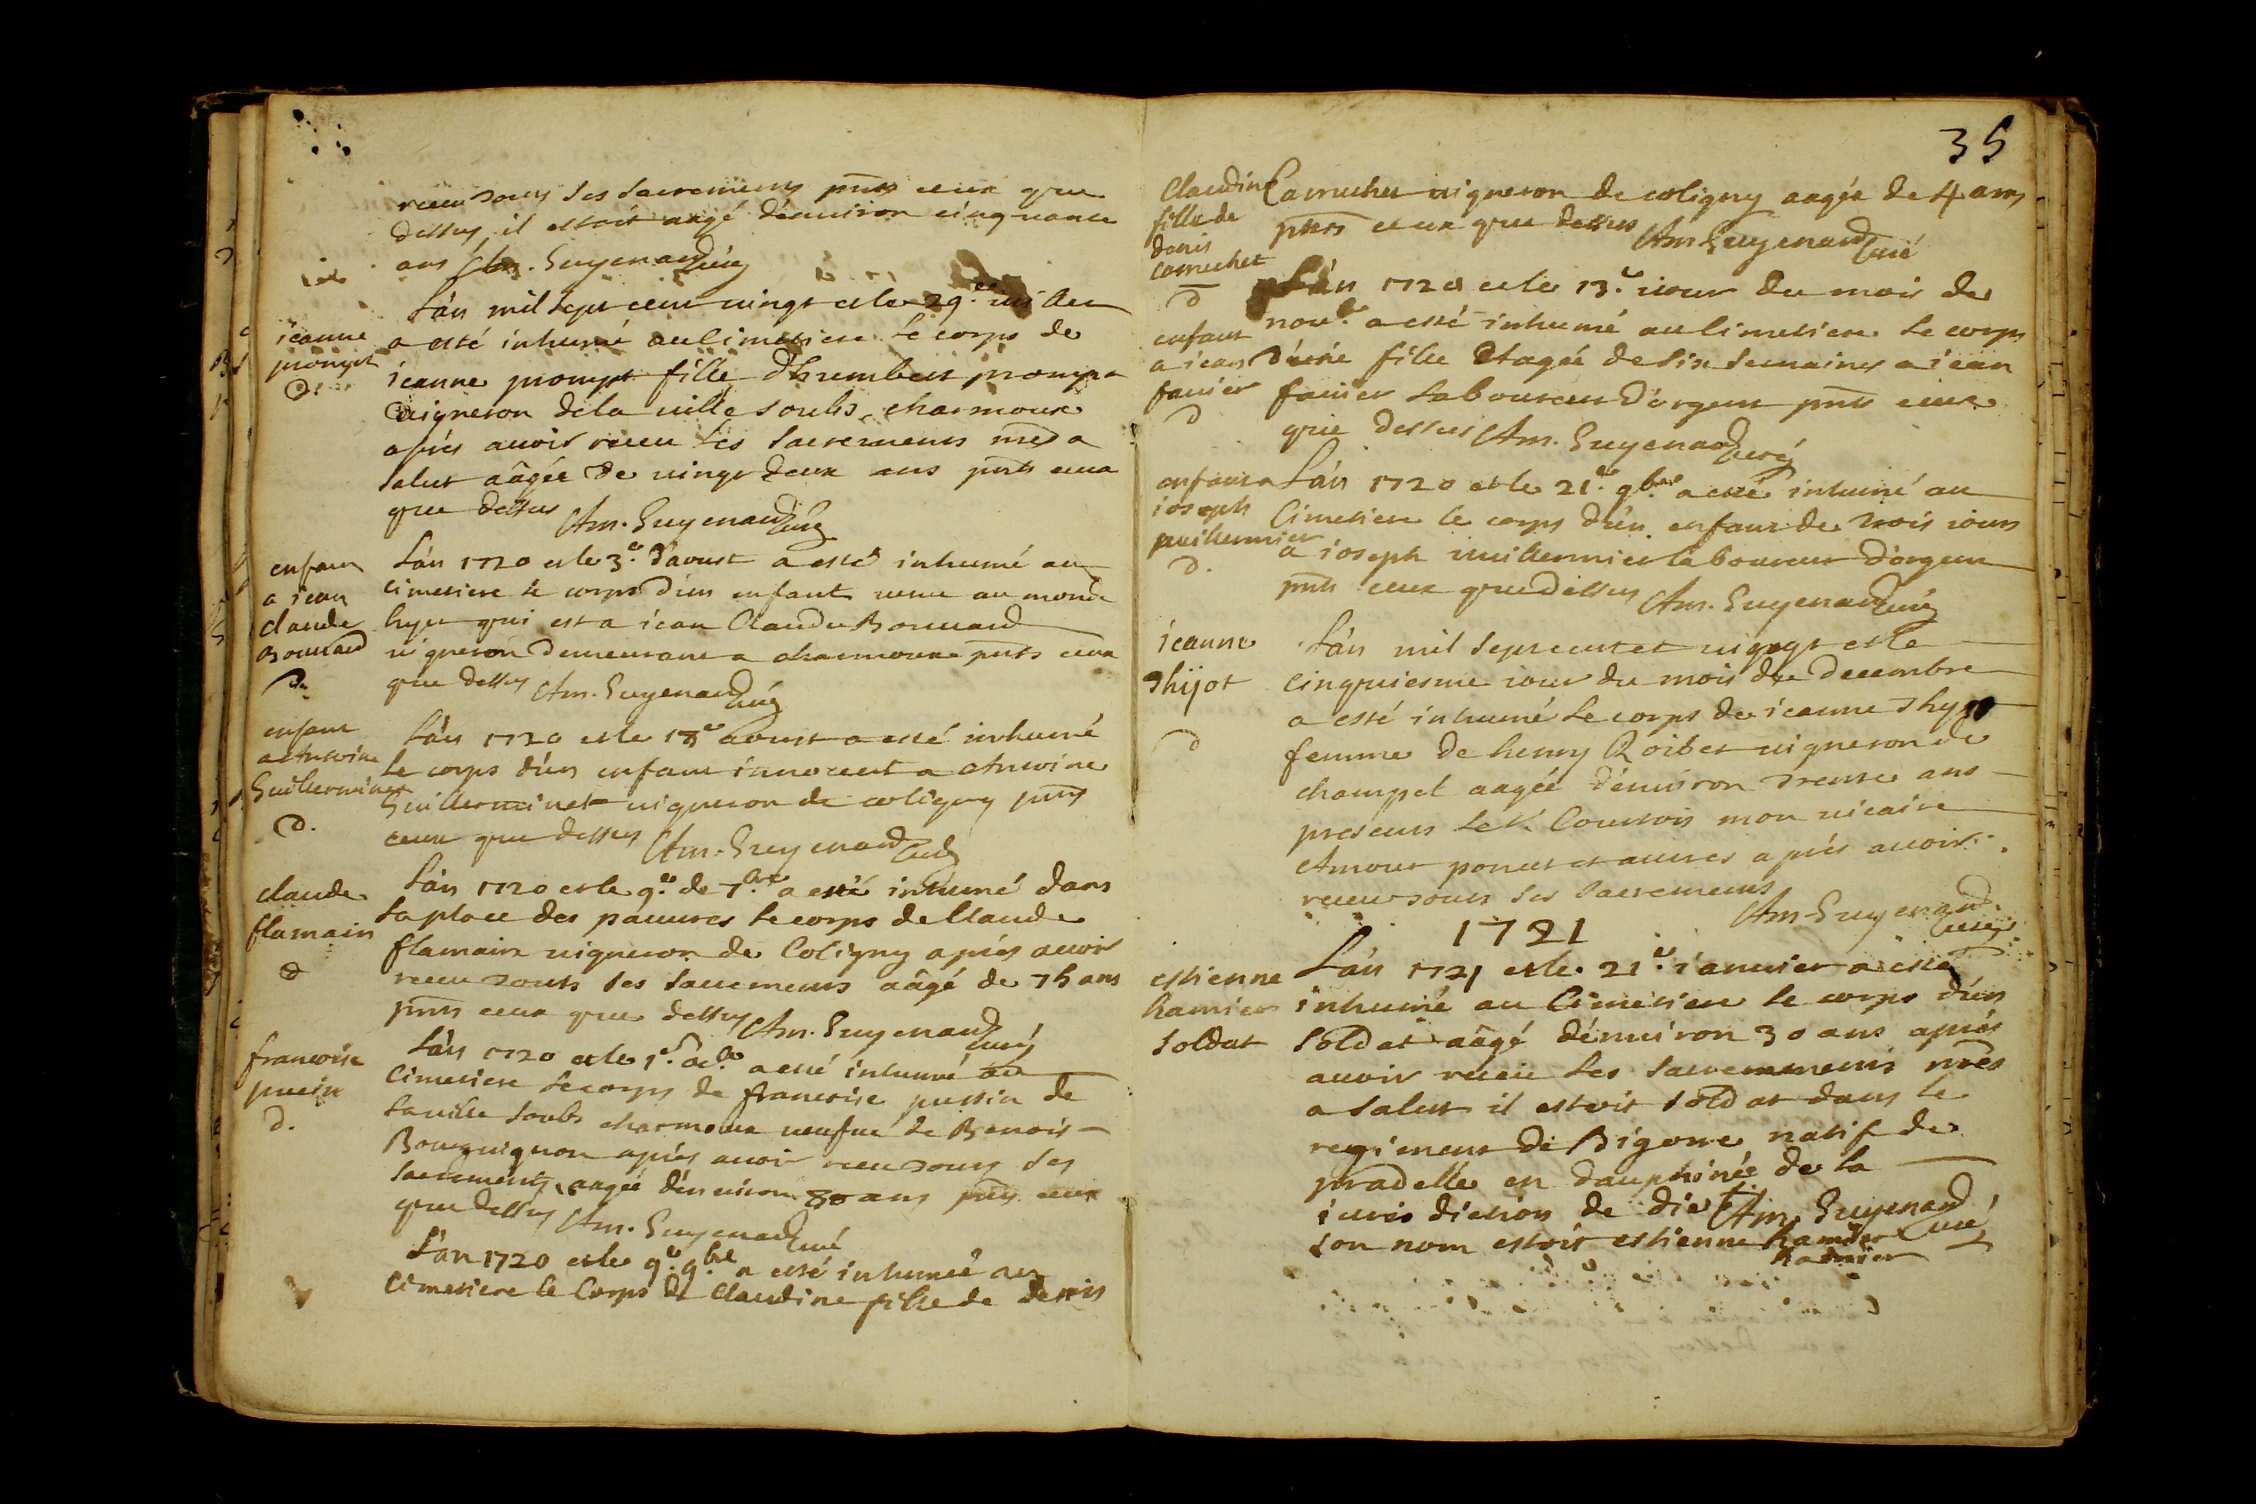 receu tous les sacremens pnts ceux que
dessus, il estoit aagé d'enuiron cinquante
ans Am. Guyenard curé
L'an mil sept cent vingt et le 29.e iuillet
ieanne
prompt
D.
a esté inhumé au cimetiere le corps de
ieanne prompt fille d'humbert prompt
vigneron de la ville soubs charmoux
apres auoir receu les sacremens nres a
salut aagée de vingt deux ans pnts ceux
que dessus Am. Guyenard curé
enfant
a iean
claude
Bouuard
D.
L'an 1720 et le 3.e d'aoust a esté inhumé au
cimetiere le corps d'un enfant venu au monde
hyer qui est a iean Claude Bouuard
vigneron demeurant a charmoux pnts ceux
que dessus Am. Guyenard curé
enfant
a Antoine
Guillerminet
D.
L'an 1720 et le 18e aoust a esté inhumé
le corps d'un enfant innocent a Antoine
Guillerminet vigneron de coligny pnts
ceux que dessus Am. Guyenard curé
claude
flamain
D
L'an 1720 et le 9.e de 7.bre a esté inhumé dans
la place des pauures le corps de Claude
flamain vigneron de Coligny apres auoir
receu touts les sacremens aagé de 75 ans
pnts ceux que dessus Am. Guyenard curé
francoise
putin
D.
L'an 1720 et le 1.er oc.bre a esté inhumé au
Cimetiere le corps de francoise putin de
la ville soubs charmoux veufue de Benoit
Bourguignon apres auoir receu tous les
sacremens, aagée d'enuiron 80 ans pnts ceux
que dessus Am. Guyenard curé
L'an 1720 et le 9.e 9.bre a esté inhumée au
Cimetiere le Corps de Claudine fille de denis
35
Claudine
fille de
denis
Camuchet
D
Camuchet vigneron de coligny aagée de 4 ans
pnts ceux que dessus Am. Guyenard curé
L'an 1720 et le 13.e iour du mois de
enfant
a iean
fauier
D
nou.bre a esté inhumé au Cimetiere le corps
d'une fille etagée de six semaines a iean
fauier laboureur d'orgent pnts ceux
que dessus Am. Guyenard curé
enfant a
ioseph
vuillermier
D.
L'an 1720 et le 21.e 9.bre a esté inhumé au
Cimetiere le corps d'un enfant de trois iours
a ioseph vuillermier laboureur d'orgent
pnts ceux que dessus Am. Guyenard curé
ieanne
Thijot
D
L'an mil sept cent et vingt et le
cinquiesme iour du mois de decembre
a esté inhumé le corps de ieanne Thyot
femme de henry Roibet vigneron de
champel aagée d'enuiron trente ans
presens le S. Courtois mon vicaire
Amour poncet et autres apres auoir
receu tous les sacremens
Am. Guyenard
curé
1721
estienne
hamier
soldat
L'an 1721 et le 21.e ianuier a esté
inhumé au Cimetiere le corps d'un
soldat aagé d'enuiron 30 ans apres
auoir receu les sacremens nres
a salut il estoit soldat dans le
regiment de Bigorre natif de
pradelle en dauphiné de la
iurisdiction de die Am. Guyenard
son nom estoit estienne hamier curé
hamier